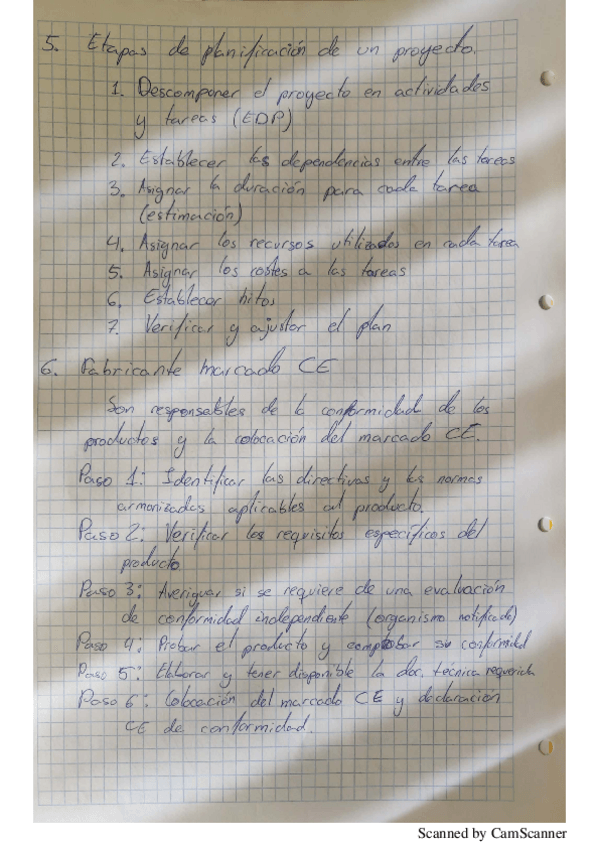 5. Etapas de planificación de un proyecto.
1. Descomponer el proyecto en actividades
y tareas (EDP)
2. Establecer las dependencias entre las tareas
3. Asignar la duración para cada tarea
(estimación)
4. Asignar los recursos utilizados en cada tarea
5. Asignar los costes a las tareas
6. Establecer hitos
7. Verificar y ajustar el plan
6. Fabricante marcado CE
Son responsables de la conformidad de los
productos y la colocación del marcado CE.
Paso 1: Identificar las directivas y las normas
armonizadas aplicables al producto.
Paso 2: Verificar los requisitos específicos del
producto
Paso 3: Averiguar si se requiere de una evaluación
de conformidad independiente (organismo notificado)
Paso 4: Probar el producto y comprobar su conformidad
Paso 5: Elaborar y tener disponible la doc. técnica requerida
Paso 6: Colocación del marcado CE y declaración
CE de conformidad.
Scanned by CamScanner